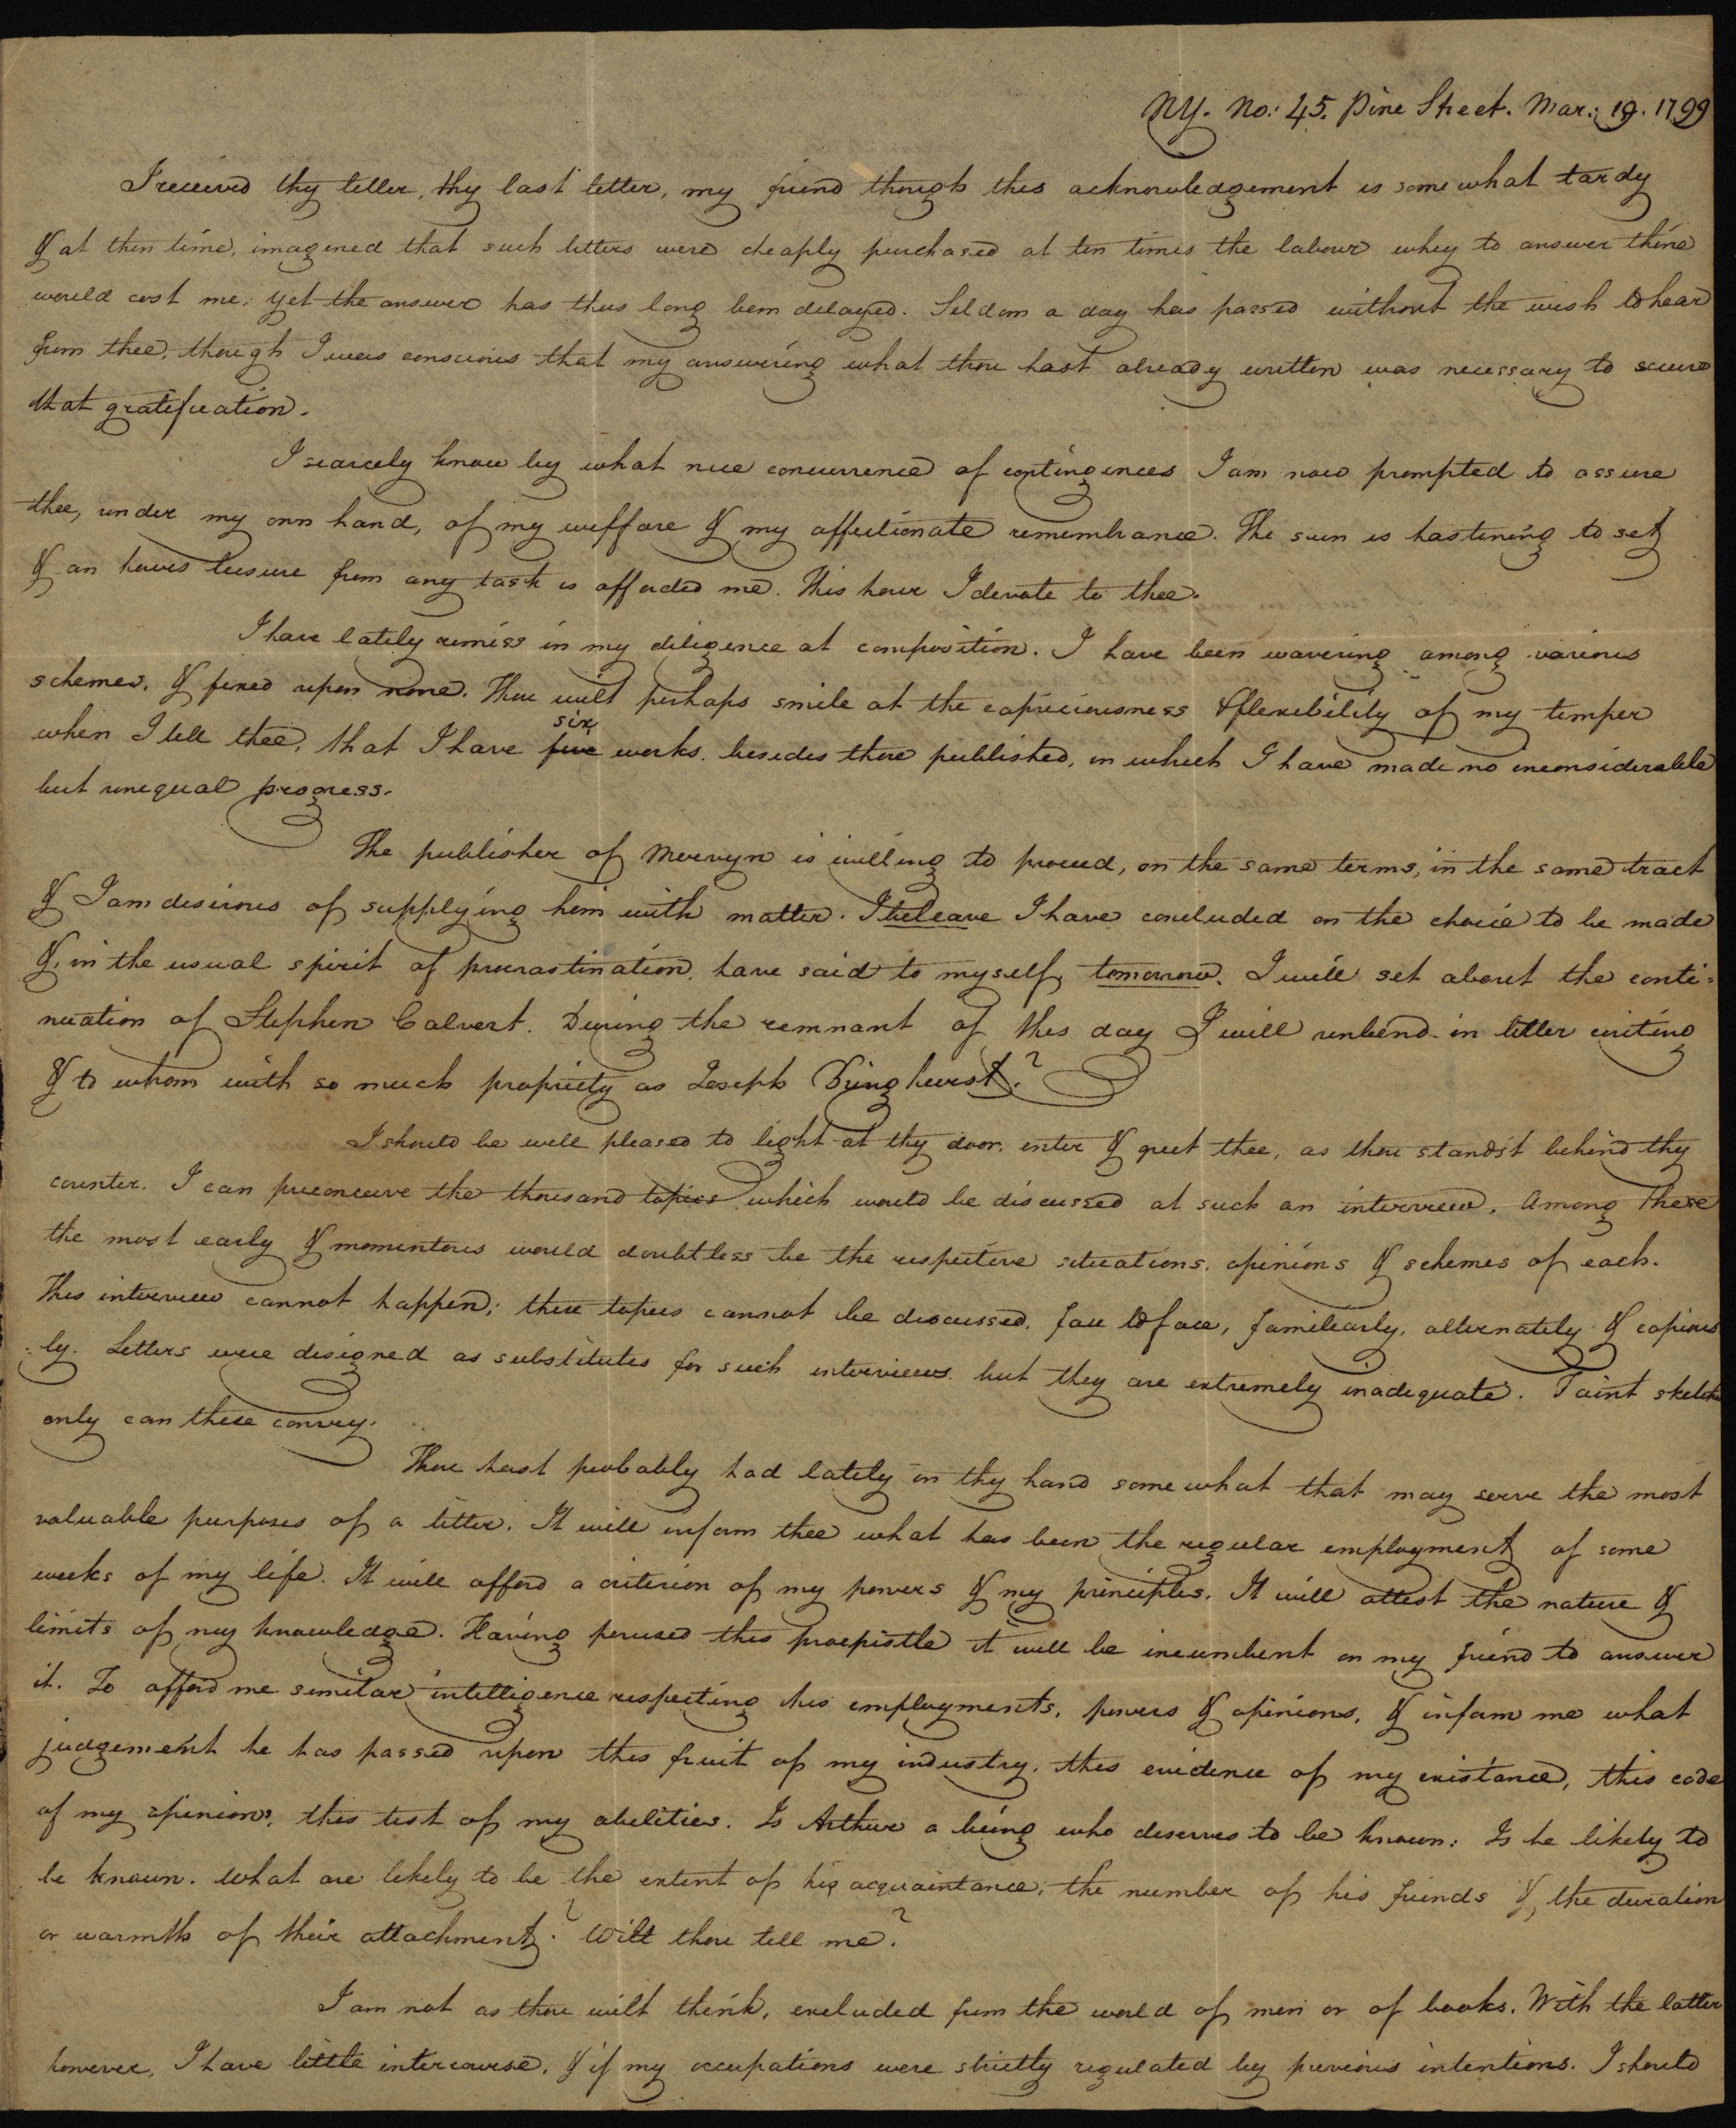 NY. No: 45. Pine Street. Mar: 19. 1799
I received thy letter, thy last letter, my friend though this acknowledgement is somewhat tardy
& at then time, imagined that such letters were cheaply purchased at ten times the labour whey to answer thine
would cost me. Yet the answer has thus long been delayed. Seldom a day has passed without the wish to hear
from thee, though I was conscious that my answering what thou hast already written was necessary to secure
that gratification.
I scarcely know by what nice concurrence of contingences I am now prompted to assure
thee, under my own hand, of my wellfare & my affectionate remembrance. The sun is hastening to set
& an hours leisure from any task is afforded me. This hour I devote to thee.
I have lately remiss in my diligence at composition. I have been wavering among various
schemes, & fixed upon none. Thou wilt perhaps smile at the capriciousness & flexibility of my temper
six
when I tell thee, that I have five works. besides those published, in which I have made no inconsiderable
but unequal progress.
The publisher of Mervyn is willing to proceed, on the same terms, in the same tract
& I am desirous of supplying him with matter. I beleave I have concluded on the choice to be made
&, in the usual spirit of procrastination, have said to myself, tomorrow. I will set about the conti=
nuation of Stephen Calvert. During the remnant of this day I will unbend in letter writing
& to whom with so much propriety as Joseph Bringhurst.?
I should be well pleased to light at thy door, enter & greet thee, as thou standst behind thy
counter. I can preconceive the thousand topics which would be discussed at such an interview. Among these
the most early & momentous would doubtless be the respective situations, opinions & schemes of each.
This interview cannot happen; these topics cannot be discussed, face to face, familiarly, alternately & copious
=ly. Letters were designed as substitutes for such interviews. but they are extremely inadequate. Faint sketches
only can these convey.
Thou hast probably had lately in thy hand somewhat that may serve the most
valuable purposes of a letter. It will inform thee what has been the regular employment of some
weeks of my life. It will afford a criterion of my powers & my principles. It will attest the nature &
limits of my knowledge. Having perused this proepistle it will be incumbent on my friend to answer
it. To afford me similar intelligence respecting his employments, powers & opinions, & inform me what
judgement he has passed upon this fruit of my industry, this evidence of my existance, this code
of my opinions, this test of my abilities. Is Arthur a being who deserves to be known: Is he likely to
be known. What are likely to be the extent of his acquaintance, the number of his friends &, the duration
or warmth of their attachment? Wilt thou tell me?
I am not as thou wilt think, excluded from the world of men or of books. With the latter
however, I have little intercourse, & if my occupations were strictly regulated by previous intentions. I should